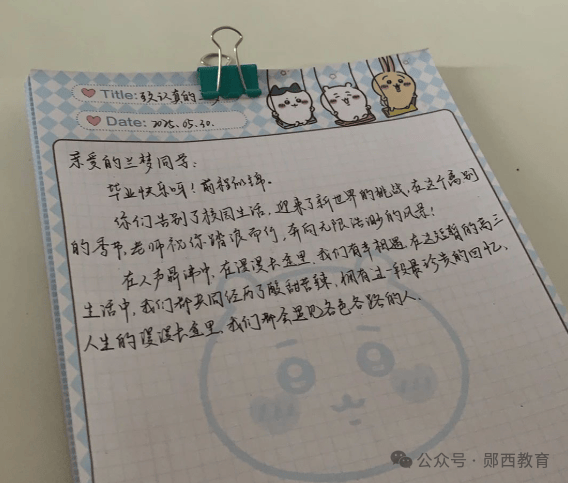 Title: 致认真的兰
Date: 2025.05.30.
亲爱的兰梦同学:
毕业快乐呀!前程似锦。
你们告别了校园生活,迎来了新世界的挑战,在这个离别
的季节,老师祝你踏浪而行,奔向无限浩渺的风景!
在人声鼎沸中,在漫漫长途里,我们有幸相遇,在这短暂的高三
生活中,我们都共同经历了酸甜苦辣,拥有这一段最珍贵的回忆,
人生的漫漫长途里,我们都会遇见各色各路的人.
公众号·郧西教育